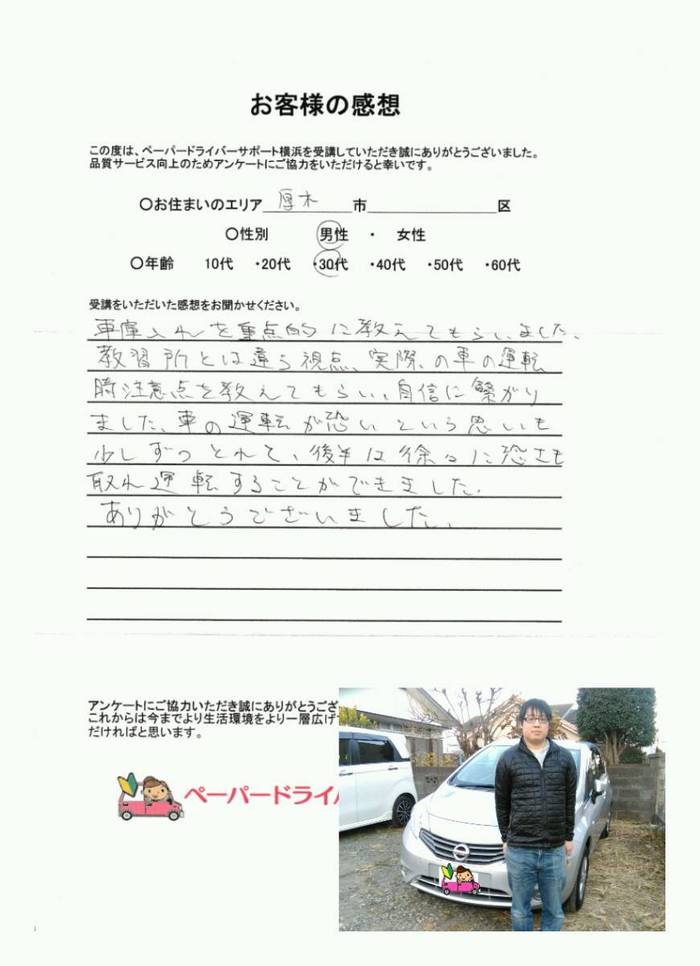 お客様の感想
この度は、ペーパードライバーサポート横浜を受講していただき誠にありがとうございました。
品質サービス向上のためアンケートにご協力をいただけると幸いです。
○お住まいのエリア 厚木 市 区
○性別 男性 ・ 女性
○年齢 10代 ・20代 ・30代 ・40代 ・50代 ・60代
受講をいただいた感想をお聞かせください。
車庫入れを重点的に教えてもらいました、
教習所とは違う視点、実際の車の運転
時注意点を教えてもらい、自信に繋がり
ました、車の運転が恐いという思いも
少しずつとれて、後半は徐々に恐さも
取れ運転することができました.
ありがとうございました、
アンケートにご協力いただき誠にありがとうござ
これからは今までより生活環境をより一層広げ
だければと思います。
ペーパードライバ